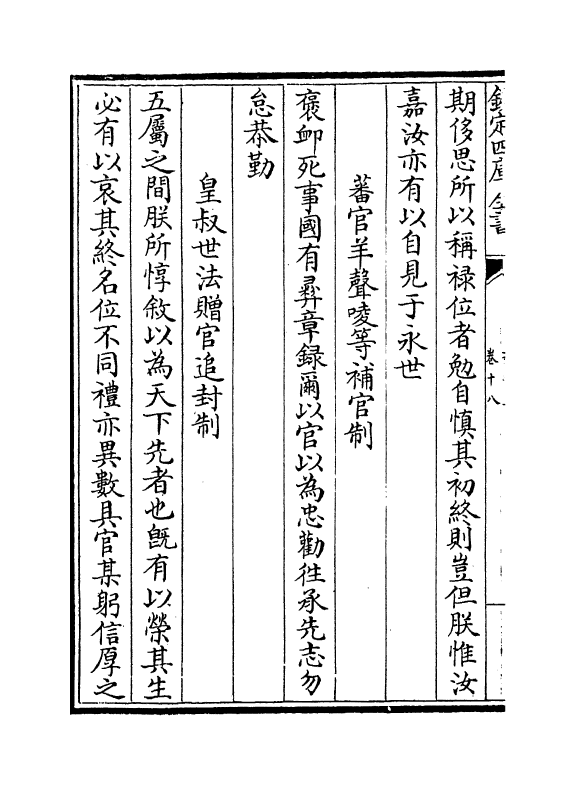 欽定四庫全書
卷十八
期侈思所以稱禄位者勉自慎其初終則豈但朕惟汝
嘉汝亦有以自見于永世
蕃官羊聲㖫等補官制
褒䘏死事國有彛章録爾以官以為忠勸徃承先志勿
怠恭勤
皇叔世法贈官追封制
五屬之間朕所惇敘以為天下先者也旣有以榮其生
必有以哀其終名位不同禮亦異數具官某躬信厚之